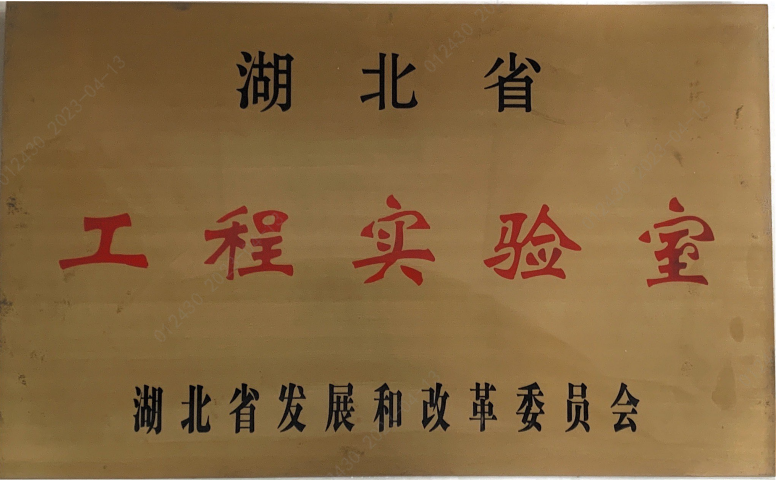 湖北省
工程实验室
湖北省发展和改革委员会
012430 2023-04-13